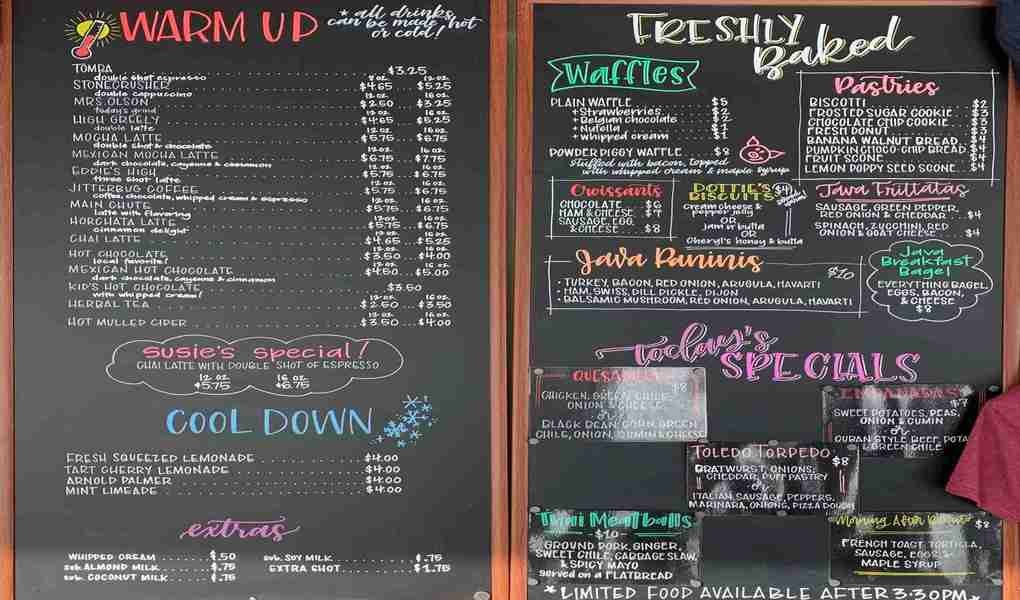 WARM UP
* all drinks
can be made hot
or cold!
TOMBA $3.25
double shot espresso
8 oz. 12 oz.
STONECRUSHER $4.65 $5.25
double cappuccino
12 oz. 16 oz.
MRS. OLSON $2.50 $3.25
today's grind
12 oz. 16 oz.
HIGH GREELY $4.65 $5.25
double latte
12 oz. 16 oz.
MOCHA LATTE $5.75 $6.75
double shot & chocolate
12 oz. 16 oz.
MEXICAN MOCHA LATTE $6.75 $7.75
dark chocolate, cayenne & cinnamon
12 oz. 16 oz.
EDDIE'S HIGH $5.75 $6.75
three shot latte
12 oz. 16 oz.
JITTERBUG COFFEE $5.75 $6.75
coffee, chocolate, whipped cream & espresso
12 oz. 16 oz.
MAIN CHUTE $5.75 $6.75
latte with flavoring
12 oz. 16 oz.
HORCHATA LATTE $5.75 $6.75
cinnamon delight
12 oz. 16 oz.
CHAI LATTE $4.65 $5.25
12 oz. 16 oz.
HOT CHOCOLATE $3.50 $4.00
local favorite!
12 oz. 16 oz.
MEXICAN HOT CHOCOLATE $4.50 $5.00
dark chocolate, cayenne & cinnamon
KID'S HOT CHOCOLATE $3.50
with whipped cream!
12 oz. 16 oz.
HERBAL TEA $2.50 $3.50
12 oz. 16 oz.
HOT MULLED CIDER $3.50 $4.00
SUSIE'S SPECIAL!
CHAI LATTE WITH DOUBLE SHOT OF ESPRESSO
12 oz. 16 oz.
$5.75 $6.75
COOL DOWN
FRESH SQUEEZED LEMONADE $4.00
TART CHERRY LEMONADE $4.00
ARNOLD PALMER $4.00
MINT LIMEADE $4.00
extras
WHIPPED CREAM $.50
sub. ALMOND MILK $.75
sub. COCONUT MILK $.75
sub. SOY MILK $.75
EXTRA SHOT $1.75
FRESHLY
Baked
Waffles
PLAIN WAFFLE $5
+Strawberries $2
+Belgian chocolate $2
+Nutella $1
+whipped cream $1
POWDER PIGGY WAFFLE $8
Stuffed with bacon, topped
with whipped cream & maple syrup
Pastries
BISCOTTI $2
FROSTED SUGAR COOKIE $3
CHOCOLATE CHIP COOKIE $3
FRESH DONUT $3
BANANA WALNUT BREAD $4
PUMPKIN CHOCO-CHIP BREAD $4
FRUIT SCONE $4
LEMON POPPY SEED SCONE $4
Croissants
CHOCOLATE $6
HAM & CHEESE $7
SAUSAGE, EGG,
& CHEESE $8
DOTTIE'S $4
BISCUITS
cream cheese &
pepper jelly
OR
jam n' butta
OR
Cheryl's honey & butta
Java Frittatas
SAUSAGE, GREEN PEPPER,
RED ONION & CHEDDAR $4
SPINACH, ZUCCHINI, RED
ONION & GOAT CHEESE $4
Java Paninis
$10
• TURKEY, BACON, RED ONION, ARUGULA, HAVARTI
• HAM, SWISS, DILL PICKLE, DIJON
• BALSAMIC MUSHROOM, RED ONION, ARUGULA, HAVARTI
Java
Breakfast
Bagel
EVERYTHING BAGEL,
EGGS, BACON,
& CHEESE
$8
today's
SPECIALS
QUESADILLA $8
CHICKEN, GREEN CHILE,
ONION & CHEESE
or
BLACK BEAN, CORN, GREEN
CHILE, ONION, CUMIN & CHEESE
EMPANADAS $7
SWEET POTATOES, PEAS,
ONION & CUMIN
or
CUBAN STYLE BEEF, POTA
& GREEN CHILE
TOLEDO TORPEDO $8
BRATWURST, ONIONS,
CHEDDAR, PUFF PASTRY
or
ITALIAN SAUSAGE, PEPPERS,
MARINARA, ONIONS, PIZZA DOUGH
Thai Meatballs
$10
GROUND PORK, GINGER,
SWEET CHILE, CABBAGE SLAW,
& SPICY MAYO
served on a FLATBREAD
Morning After Burrito $8
FRENCH TOAST TORTILLA,
SAUSAGE, EGGS &
MAPLE SYRUP
* LIMITED FOOD AVAILABLE AFTER 3:30PM *